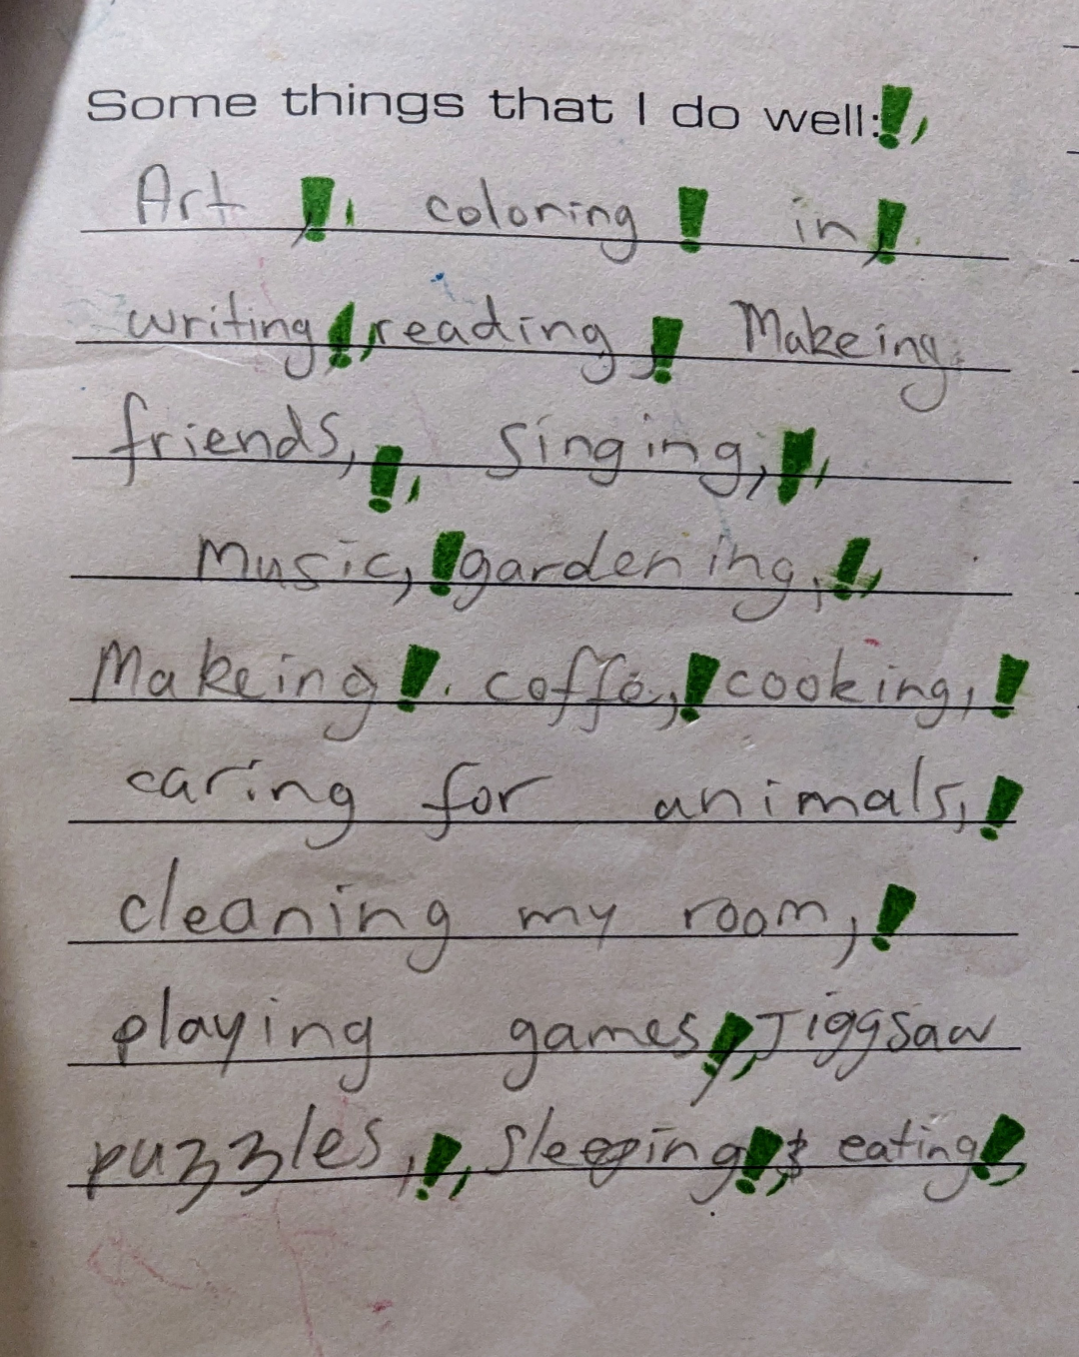 Some things that I do well:!,
Art !, coloring ! in,!
writing!,reading,! Makeing
friends,!, singing,!,
Music,!gardening,!,
Makeing!. coffe,!cooking,!
caring for animals,!
cleaning my room,!
playing games!,Jiggsaw
puzzles,!, sleeping!,& eating!,